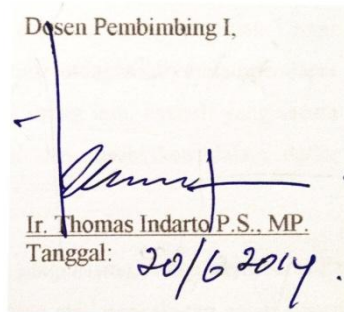 Dosen Pembimbing I,
Ir. Thomas Indarto P.S., MP.
Tanggal: 20/6 2014.